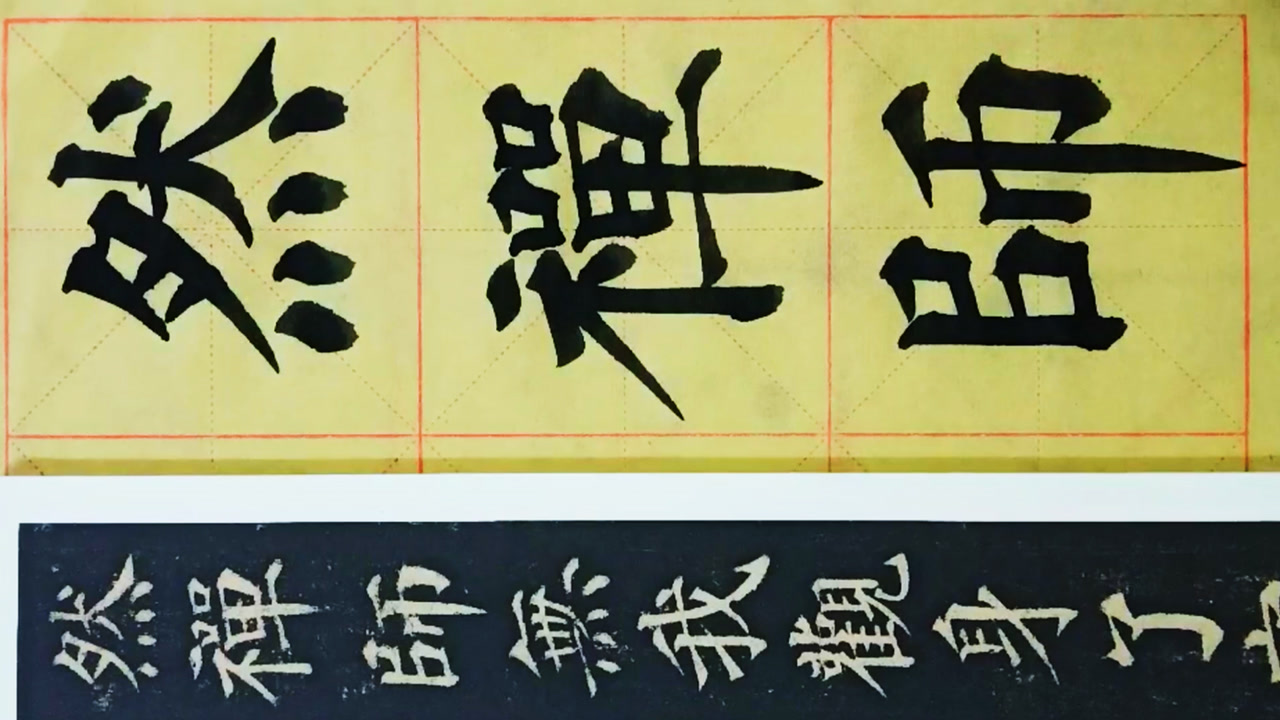 然禪師
然禪師無我觀身了